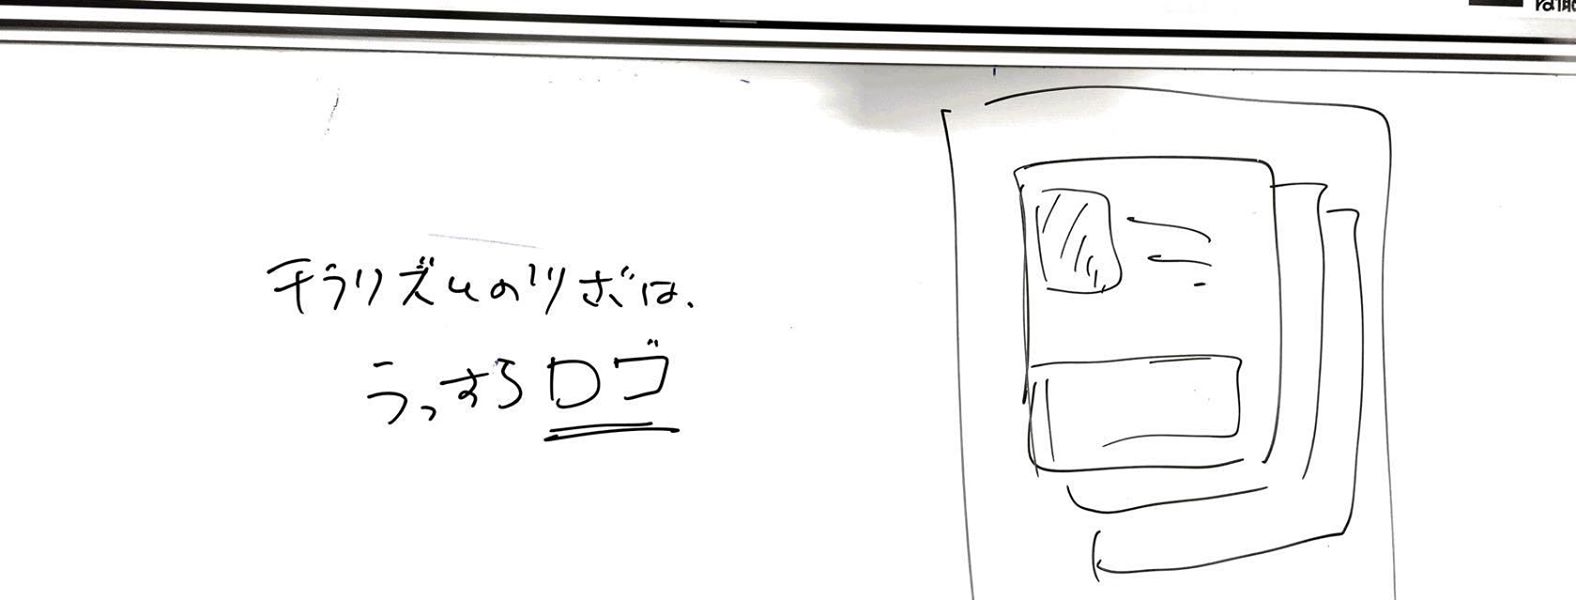 チラリズムのツボは、
うっすらロゴ